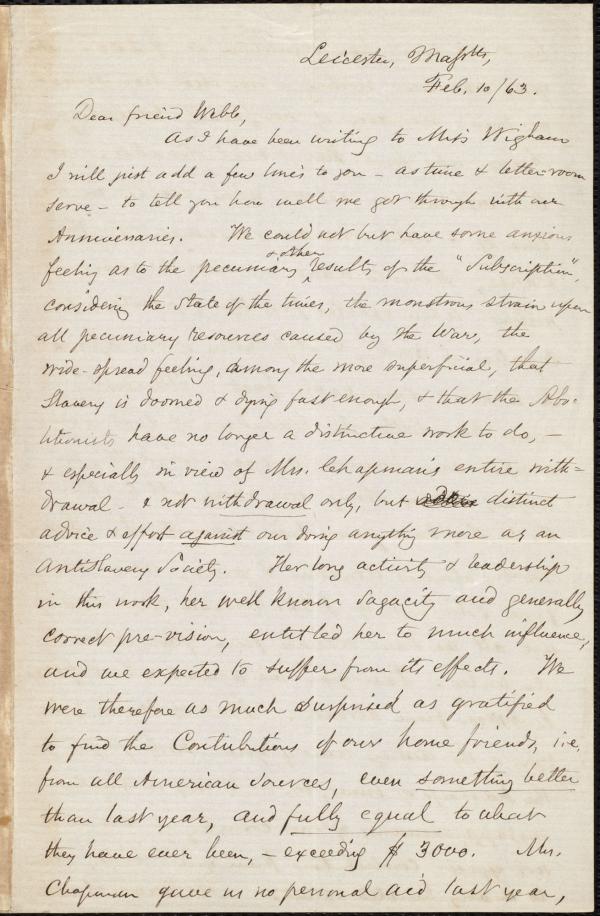 Leicester, Massts,
Feb. 10/63.
Dear friend Webb,
As I have been writing to Miss Wigham
I will just add a few lines to you – as time & letter-room
serve – to tell you how well we got through with our
Anniversaries. We could not but have some anxious
feeling as to the pecuniary & other results of the "Subscription",
considering the state of the times, the monstrous strain upon
all pecuniary resources caused by the War, the
wide-spread feeling, among the more superficial, that
Slavery is doomed & dying fast enough, & that the Abo-
litionists have no longer a distinctive work to do, –
& especially in view of Mrs. Chapman's entire with-
drawal – & not withdrawal only, but distinct
advice & effort against our doing anything more as an
AntiSlavery Society. Her long activity & leadership
in this work, her well known sagacity and generally
correct pre-vision, entitled her to much influence,
and we expected to suffer from its effects. We
were therefore as much surprised as gratified
to find the Contributions of our home friends, i.e.
from all American sources, even something better
than last year, and fully equal to what
they have ever been, – exceeding $3000. Mrs.
Chapman gave us no personal aid last year,